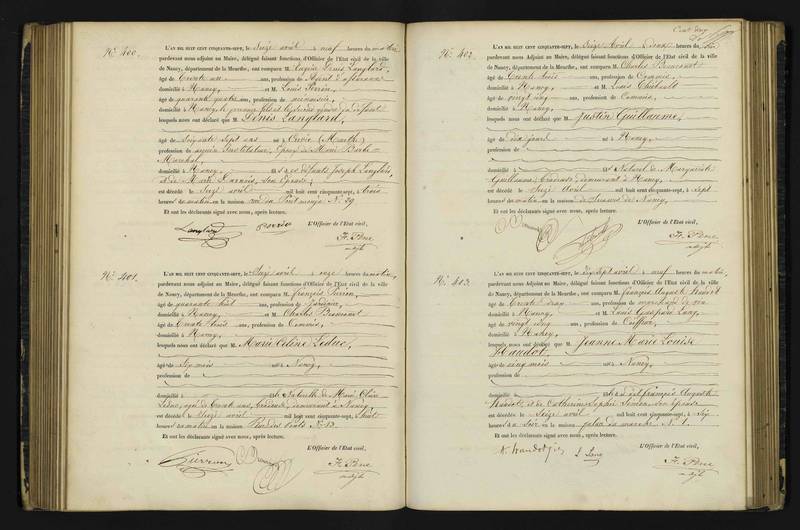 N.º 400.
L'AN MIL HUIT CENT CINQUANTE-SEPT, le Seize avril à neuf heures du matin
pardevant nous Adjoint au Maire, délégué faisant fonctions d'Officier de l'Etat civil de la ville
de Nancy, département de la Meurthe, ont comparu M. Eugène Denis Langlard,
âgé de trente un ans, profession de Agent d'affaires
domicilié à Nancy, et M. Louis Perrin,
âgé de quarante quatre ans, profession de menuisier,
domicilié à Nancy, le premier fils et le second gendre du défunt
lesquels nous ont déclaré que M. Denis Langlard,
âgé de Soixante Sept ans né à (Marne)
profession de ancien Instituteur, Epoux de Marie Barbe
Marchal,
domicilié à Nancy fils de défunts Joseph Langlard,
et de Marie son épouse;
est décédé le Seize avril mil huit cent cinquante-sept, à trois
heures du matin en la maison rue du Pont mouja N.º 29.
Et ont les déclarants signé avec nous, après lecture.
L'Officier de l'Etat civil,
Langlard Perrin
adjt
N.º 401.
L'AN MIL HUIT CENT CINQUANTE-SEPT, le Seize avril à onze heures du matin,
pardevant nous Adjoint au Maire, délégué faisant fonctions d'Officier de l'Etat civil de la ville
de Nancy, département de la Meurthe, ont comparu M. François
âgé de quarante huit ans, profession de
domicilié à Nancy et M. Charles
âgé de trente trois ans, profession de Commis,
domicilié à Nancy,
lesquels nous ont déclaré que M. Marie Céline Leduc,
âgé de Six mois né à Nancy,
profession de
domicilié à fille Naturelle de Marie
Leduc, âgée de trente ans, demeurant à Nancy
est décédé le Seize avril mil huit cent cinquante-sept, à huit
heures du matin en la maison Rue des N.º 13.
Et ont les déclarants signé avec nous, après lecture.
L'Officier de l'Etat civil,
adjt
N.º 402.
L'AN MIL HUIT CENT CINQUANTE-SEPT, le Seize Avril à Deux heures du soir
pardevant nous Adjoint au Maire, délégué faisant fonctions d'Officier de l'Etat civil de la ville
de Nancy, département de la Meurthe, ont comparu M. Charles
âgé de trente trois ans, profession de Commis,
domicilié à Nancy, et M. Louis Thiébault
âgé de vingt cinq ans, profession de Commis,
domicilié à Nancy,
lesquels nous ont déclaré que M. Justin Guillaume,
âgé de dix jours né à Nancy
profession de
domicilié à fils Naturel de Marguerite
Guillaume, demeurant à Nancy,
est décédé le Seize Avril mil huit cent cinquante-sept, à sept
heures du matin en la maison de Secours de Nancy,
Et ont les déclarants signé avec nous, après lecture.
L'Officier de l'Etat civil,
adjt
N.º 403.
L'AN MIL HUIT CENT CINQUANTE-SEPT, le dix sept avril à neuf heures du matin,
pardevant nous Adjoint au Maire, délégué faisant fonctions d'Officier de l'Etat civil de la ville
de Nancy, département de la Meurthe, ont comparu M. François Auguste Haudot
âgé de trente ans, profession de marchand de vin
domicilié à Nancy, et M. Louis Gaspard Lang,
âgé de vingt cinq ans, profession de Coiffeur,
domicilié à Nancy,
lesquels nous ont déclaré que M. Jeanne Marie Louise
Haudot,
âgé de cinq mois né à Nancy,
profession de
domicilié à fille du dit François Auguste
Haudot, et de Catherine Sophie Simon, son épouse
est décédé le Seize avril mil huit cent cinquante-sept, à six
heures du soir en la maison place du marché N.º 1.
Et ont les déclarants signé avec nous, après lecture.
L'Officier de l'Etat civil,
L Lang
adjt